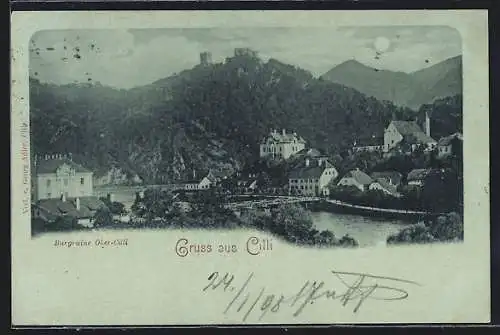 Verl. v. Georg Adler, Cilli
Burgruine Ober-Cilli
Gruss aus Cilli
24/1/98